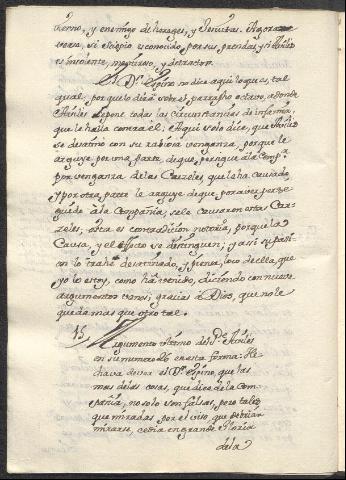 terno, y enemigo de hereges, y Jesuitas. Agora se
vera, si Espino es conocido por sus prendas, y si Aviles
es insolente, mentiroso, y detractor.
El Dor. Espino no dice aqui lo que es, tal
qual, porque lo dirà sobre el parrapho octavo, adonde
Aviles depone todas las circunstancias de infamia,
que le halla contra èl; Aqui solo dice, que Aviles
se desatinò con su rabiosa venganza, porque le
arguye por una parte, de que, persigue à la Compa.
por venganza de las Carzeles, que le ha causado,
y por otra parte le arguye de que por aver perse-
guido à la Compañia, se le causaron estas Car-
zeles; esta es contradicion notoria, porque la
Causa, y el efecto se distinguen; y assi su pasi-
on lo trahe desatinado, y piensa, loco de ella, que
yo lo estoy, como ha venido, diciendo con nueve
argumentos tionos; gracias à Dios, que no le
queda mas que otro tal.
15 Argumento ultimo del Pe. Aviles
en su numero 26 en esta forma: He
chava de ver el Dr. Espino, que las
mas de las cosas, que dice de la Com-
pañia, no solo son falsas, pero tales
que miradas por el viso, que debrian
mirarse, cedia en grande Gloria
de la